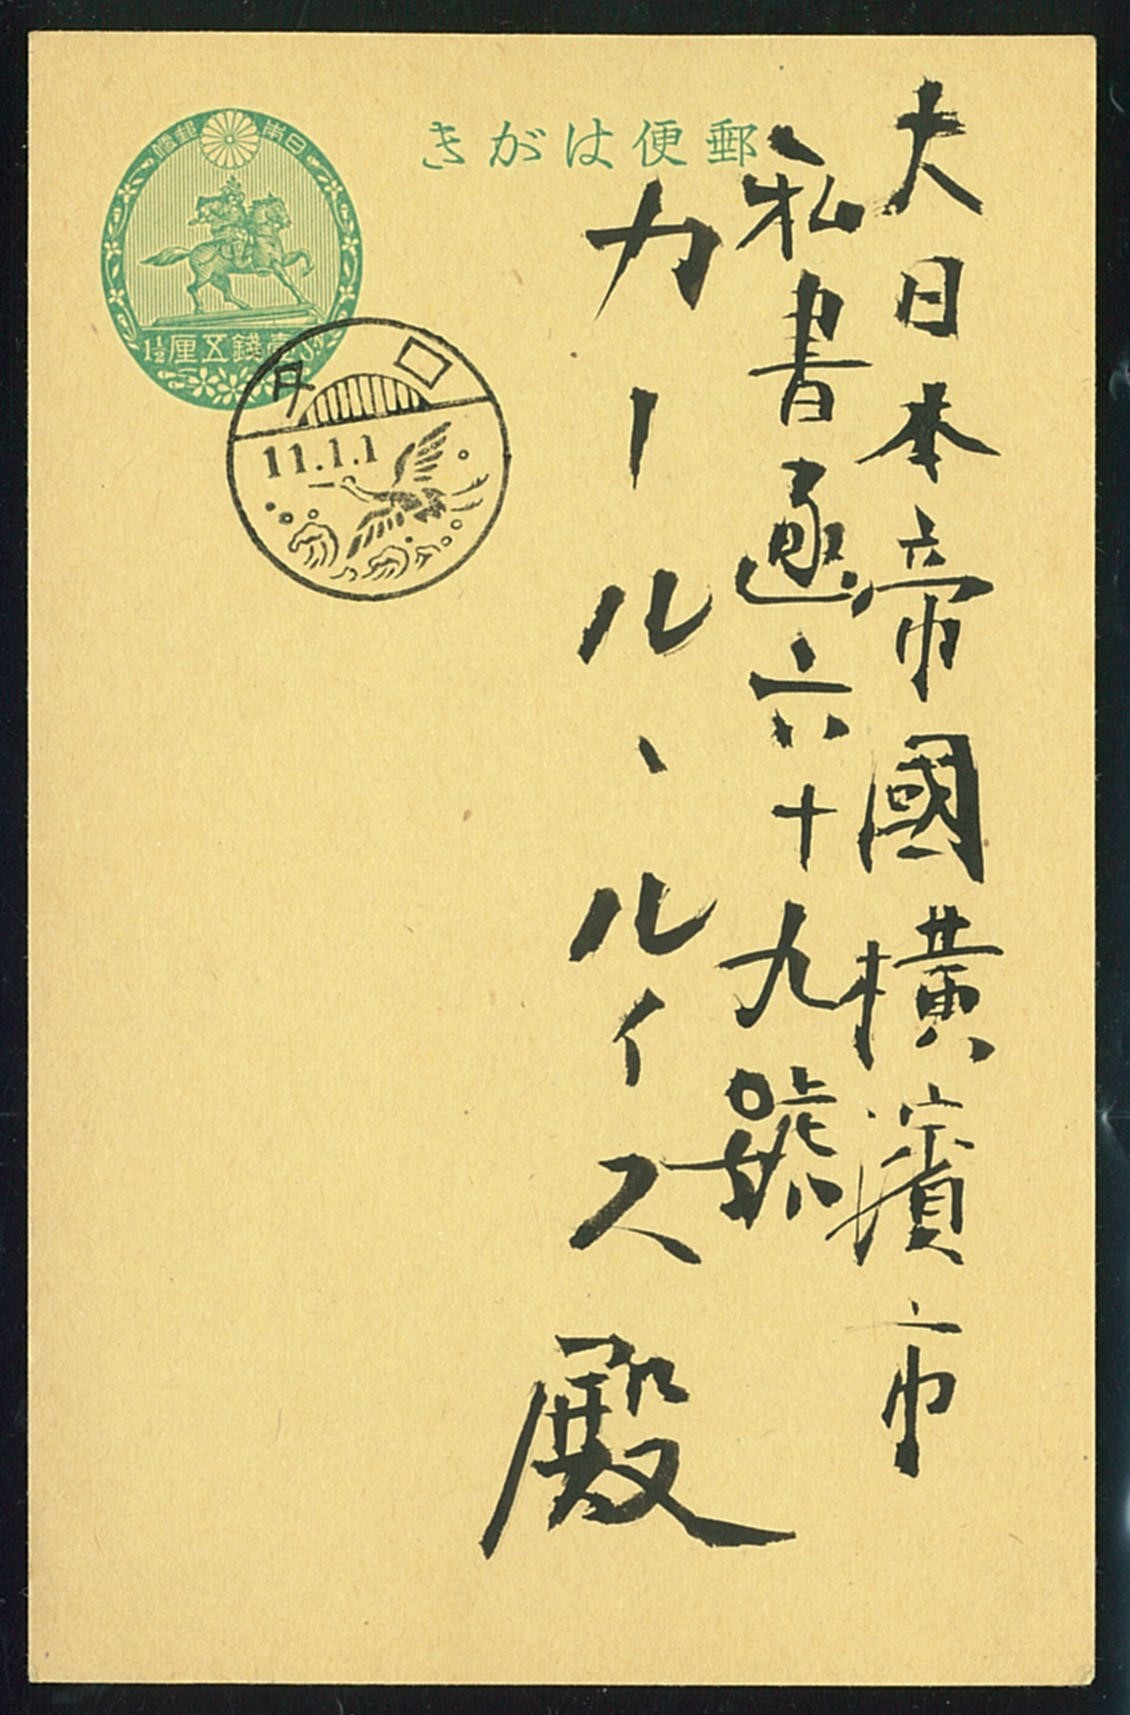 郵便はがき
日本郵便
壹錢五厘
1½
Sn
丹口
11.1.1
大日本帝國橫濱市
私書函六十九號
カール、ルイス殿